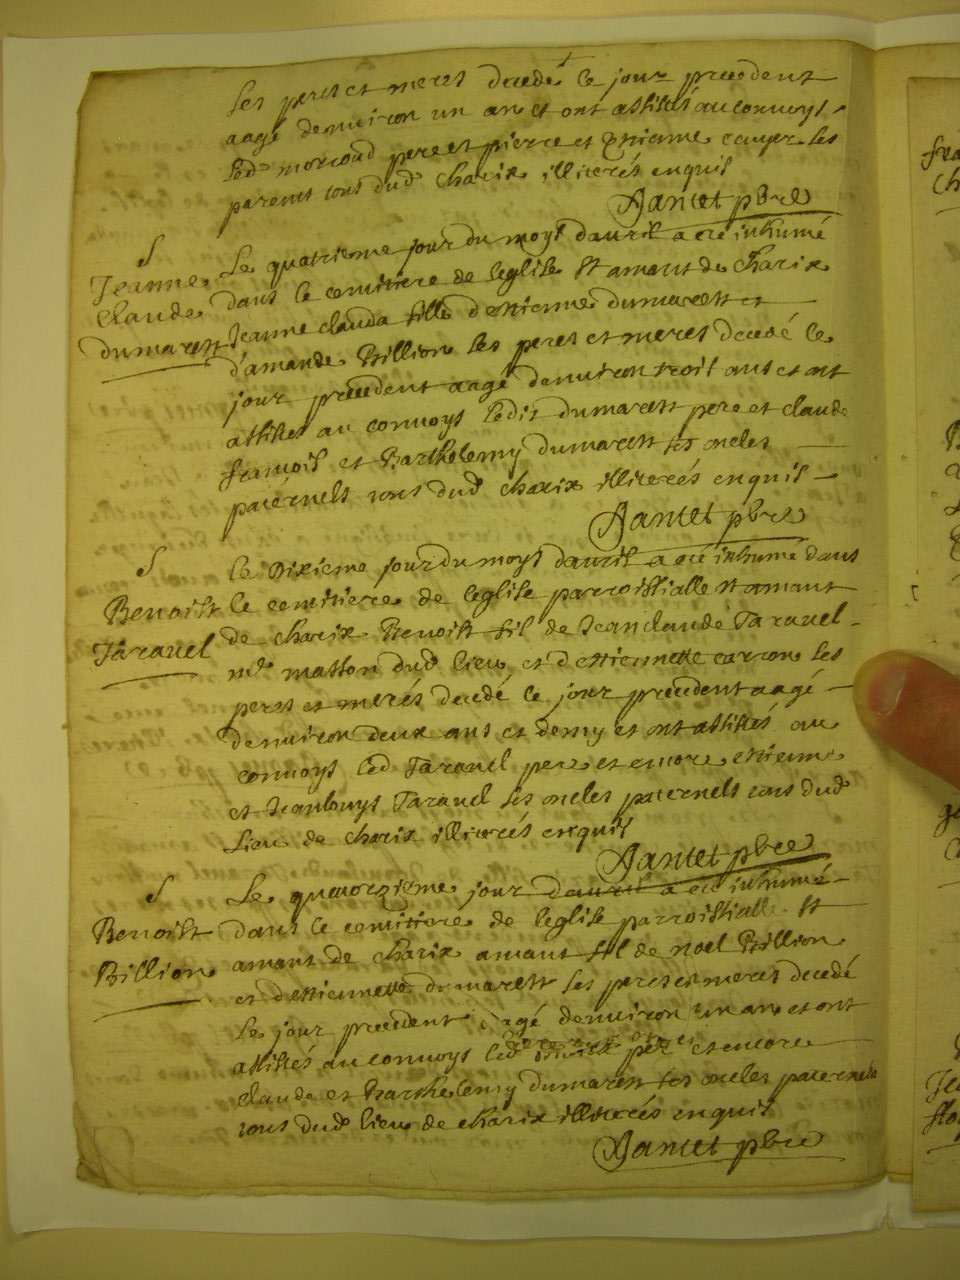 ses peres et meres decedé le jour precedent
aagé denuiron un an et ont assistés au conuoys
led. pere et pierre et Estienne les
parents tous dud. Charix illiterés enquis
Jantet pbre
S
Jeanne
Claude
dumarest
Le quatrieme jour du moys dauril a eté inhumé
dans le cemitiere de leglise St amant de Charix
Jeanne clauda fille destienne dumarest et
damande Billion ses peres et meres decedé le
jour precedent aagé denuiron trois ans et ont
assistés au conuoys ledit dumarest pere et claude
francois et Barthelemy dumarest ses oncles
paternels tous dud. Charix illiterés enquis
Jantet pbre
S
Benoist
Tarauel
Le Dixieme jour du moys dauril a eté inhumé dans
le cemitiere de leglise parroissialle St amant
de Charix Benoist fil de Jeanclaude Tarauel
mr. masson dud. lieu et destiennette carron ses
peres et merés decedé le jour precedent aagé
denuiron deux ans et demy et ont assistés au
conuoys led. Tarauel pere et encore estienne
et Jeanlouys Tarauel ses oncles paternels tous dud.
Lieu de Charix illiterés enquis
Jantet pbre
S
Benoist
Billion
Le quatorzieme jour dauril a eté inhumé
dans le cemitiere de leglise parroissialle St
amant de Charix amant fil de noel Billion
et destiennette dumarest ses peres et meres decedé
Le jour precedent aagé denuiron un an et ont
assistés au conuoys led. pere et encore
claude et Barthelemy dumarest ses oncles paternels
tous dud. lieu de Charix illiterés enquis
Jantet pbre